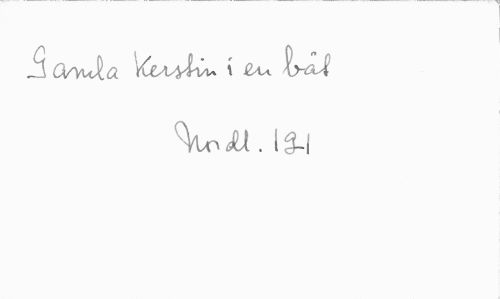 Gamla Kerstin i en båt
Nordl. 191